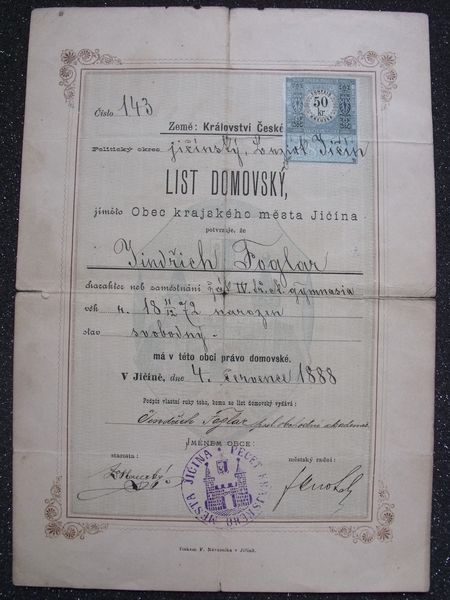 Číslo 143
50
kr
Země: Království České
Politický okres jičínský, Jičín
LIST DOMOVSKÝ,
jímžto Obec krajského města Jičína
potvrzuje, že
Jindřich Foglar
charakter neb zaměstnání žák IV. tř. gymnasia
věk n. 18 11/12 72 narozen
stav svobodný.
má v této obci právo domovské.
V Jičíně, dne 4. července 1888
Podpis vlastní ruky toho, komu se list domovský vydává:
Jindřich Foglar
JMÉNEM OBCE:
starosta: městský radní:
PEČEŤ KRAJSKÉHO MĚSTA JIČÍNA
Tiskem F. Navrátila v Jičíně.